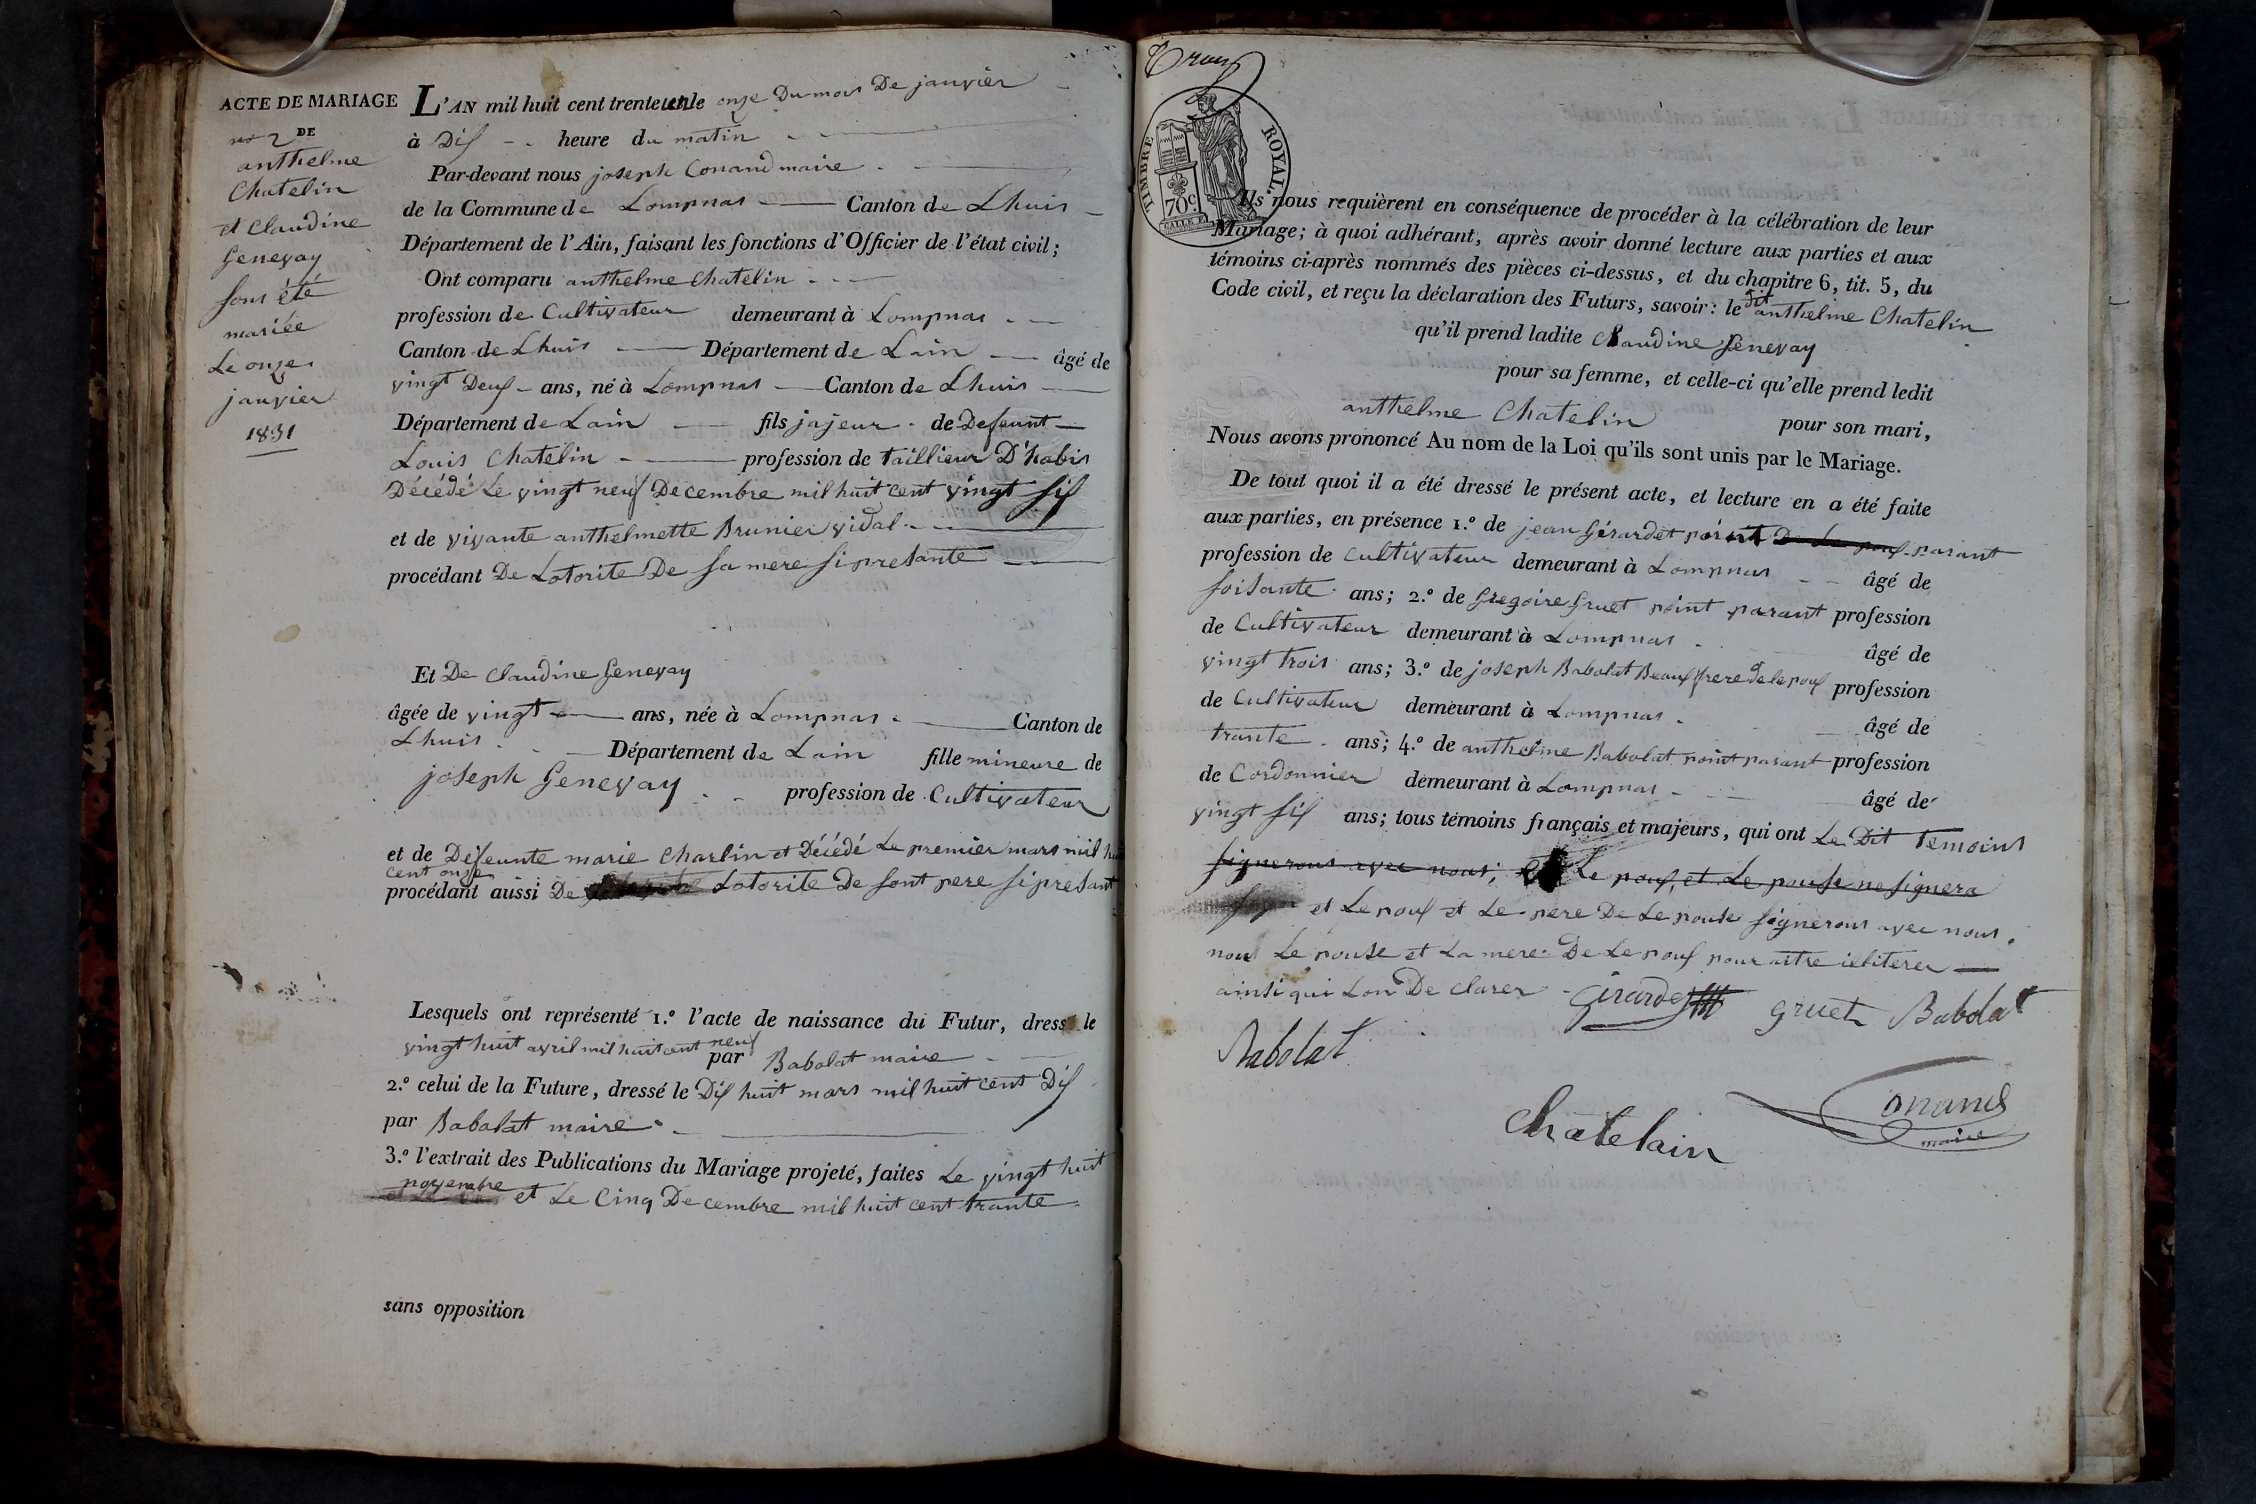 ACTE DE MARIAGE
no 2 DE
anthelme
Chatelin
et Claudine
Genevay
sons été
mariée
Le onze
janvier
1831
L'AN mil huit cent trente un le onze Du mois De janvier
à Dix heure du matin
Par-devant nous joseph Conand maire
de la Commune de Lompnas Canton de Lhuis
Département de l'Ain, faisant les fonctions d'Officier de l'état civil;
Ont comparu anthelme Chatelin
profession de Cultivateur demeurant à Lompnas
Canton de Lhuis Département de Lain âgé de
vingt Deux ans, né à Lompnas Canton de Lhuis
Département de Lain fils jajeur de Defeunt
Louis Chatelin profession de taillieur D'habis
Décédé Le vingt neuf Decembre mil huit cent vingt six
et de vivante anthelmette Brunier vidal
procédant De Lotorite De sa mere si presante
Et De Claudine Genevay
âgée de vingt ans, née à Lompnas Canton de
Lhuis Département de Lain fille mineure de
joseph Genevay profession de Cultivateur
et de Defeunte marie Charlin et Décédé Le premier mars mil hui
cent onze
procédant aussi De Lotorite De sont pere si presant
Lesquels ont représenté 1.º l'acte de naissance du Futur, dressé le
vingt huit avril mil huit cent neuf par Babolat maire
2.º celui de la Future, dressé le Dix huit mars mil huit cent Dix
par Babolat maire
3.º l'extrait des Publications du Mariage projeté, faites Le vingt huit
novembre et Le Cinq Decembre mil huit cent trante
sans opposition
TIMBRE ROYAL.
70c.
Ils nous requièrent en conséquence de procéder à la célébration de leur
Mariage; à quoi adhérant, après avoir donné lecture aux parties et aux
témoins ci-après nommés des pièces ci-dessus, et du chapitre 6, tit. 5, du
Code civil, et reçu la déclaration des Futurs, savoir: le dit anthelme Chatelin
qu'il prend ladite Claudine Genevay
pour sa femme, et celle-ci qu'elle prend ledit
anthelme Chatelin pour son mari,
Nous avons prononcé Au nom de la Loi qu'ils sont unis par le Mariage.
De tout quoi il a été dressé le présent acte, et lecture en a été faite
aux parties, en présence 1.º de jean Girardet point De Le poux parant
profession de Cultivateur demeurant à Lompnas âgé de
soisante ans; 2.º de Gregoire Gruet point parant profession
de Cultivateur demeurant à Lompnas âgé de
vingt trois ans; 3.º de joseph Babolat Beaux frere de le poux profession
de Cultivateur demeurant à Lompnas âgé de
trante ans; 4.º de anthelme Babolat point parant profession
de Cordonnier demeurant à Lompnas âgé de
vingt six ans; tous témoins français et majeurs, qui ont Le Dit temoins
signerons avec nous, et Le poux, et Le pouse ne signera
et Le poux et Le pere De Le pouse signerons avec nous.
non Le pouse et La mere De Le poux pour aitre ieliterer
ainsi qui Lon De clarer Girardet Gruet Babolat
Babolat
Conand
maire
Chatelain